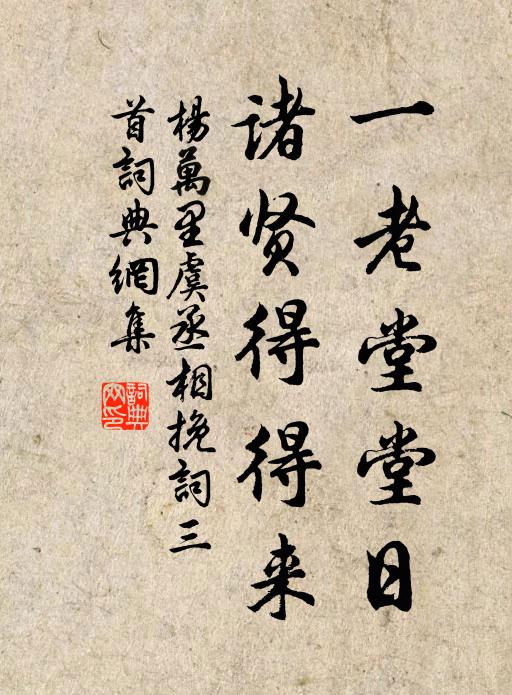 一老堂堂日
诸贤得得来
楊萬里虞丞相挽詞三
首詞典網集
詞典
网印